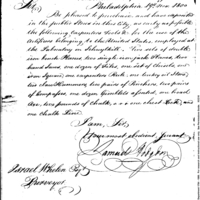 Philadelphia 19th Nov 1800
Sir,
Be pleased to purchase and have deposited
in the public Store in this City, as early as possible
the following Carpenters Tools for the use of the
Artificers belonging to the United States, now employed at
the Laboratory on Schuylkill. Two sets of double
iron bench Planes, two single iron jack Planes, two
hand Saws, one dozen of Files, one set of Chisels, one
Iron Square, one carpenters Rule, one
two claw Hammers, two pair of Pincers, two pairs
of Compasses, one dozen Gimblets assorted, one
two pounds of Chalk, one Chest Lock, and
one Chalk Line
I am Sir,
Your most obedient Servant
Samuel Hodgdon
Israel Whelen Esqr
Purveyor